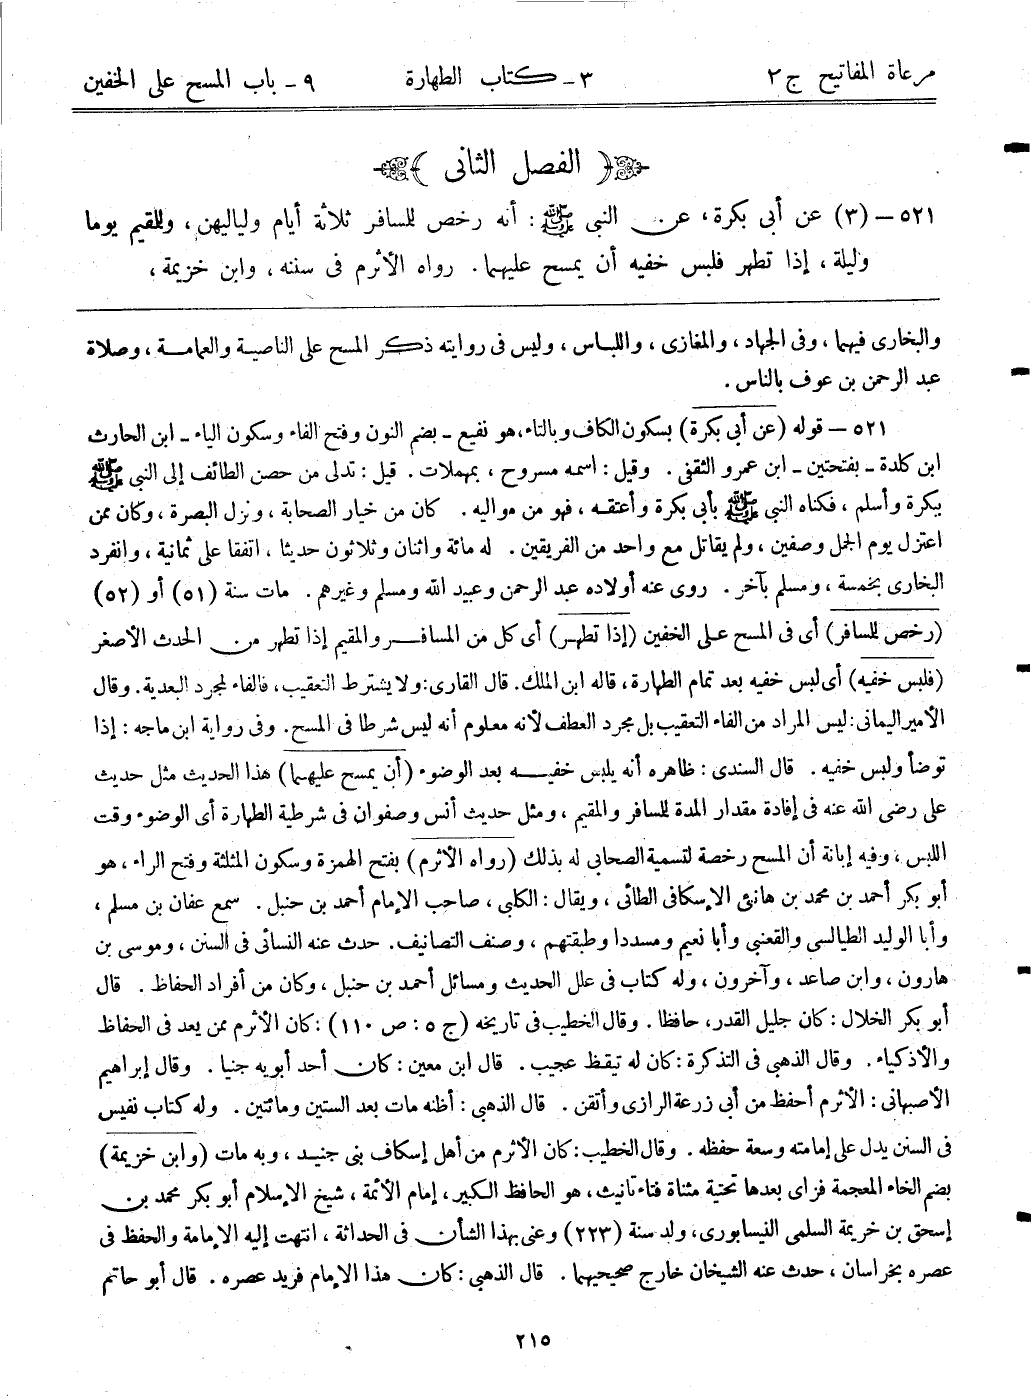 مرعاة المفاتيح ج ٢ ٣ـ كتاب الطهارة ٩ـ باب المسح على الخفين
﴿ الفصل الثانى ﴾
٥٢١ – (٣) عن أبى بكرة، عن النبى ﷺ : أنه رخص للسافر ثلاثة أيام ولياليهن، وللقيم يوما
وليلة ، إذا تطهر فلبس خفيه أن يمسح عليهما. رواه الأثرم فى سننه، وابن خزيمة،
والبخارى فيهما ، وفى الجهاد، والمغازى، واللباس، وليس فى روايته ذكر المسح على الناصية والعمامة، وصلاة
عبد الرحمن بن عوف بالناس.
٥٢١ – قوله (عن أبى بكرة) بسكون الكاف وبالتاء، هو نفيع ـ بضم النون وفتح الفاء وسكون الياء ـ ابن الحارث
ابن كلدة ـ بفتحتين ـ ابن عمرو الثقفى. وقيل: اسمه مسروح، بمهملات. قيل: تدلى من حصن الطائف إلى النبى ﷺ
ببكرة وأسلم ، فكناه النبى ﷺ بأبى بكرة وأعتقه ، فهو من مواليه. كان من خيار الصحابة ، ونزل البصرة ، وكان ممن
اعتزل يوم الجمل وصفين ، ولم يقاتل مع واحد من الفريقين. له مائة واثنان وثلاثون حديثا، اتفقا على ثمانية ، وانفرد
البخارى بخمسة ، ومسلم بآخر. روى عنه أولاده عبد الرحمن وعبيد الله ومسلم وغيرهم. مات سنة (٥١) أو (٥٢)
(رخص للسافر) أى فى المسح على الخفين (إذا تطهر) أى كل من المسافر والمقيم إذا تطهر من الحدث الأصغر
(فلبس خفيه) أى لبس خفيه بعد تمام الطهارة، قاله ابن الملك. قال القارى: ولا يشترط التعقيب، فالفاء لمجرد البعدية. وقال
الأمير اليمانى: ليس المراد من الفاء التعقيب بل مجرد العطف لأنه معلوم أنه ليس شرطا فى المسح. وفى رواية ابن ماجه: إذا
توضأ ولبس خفيه. قال السندى: ظاهره أنه يلبس خفيه بعد الوضوء (أن يمسح عليهما) هذا الحديث مثل حديث
على رضى الله عنه فى إفادة مقدار المدة للسافر والمقيم ، ومثل حديث أنس وصفوان فى شرطية الطهارة أى الوضوء وقت
اللبس ، وفيه إبانة أن المسح رخصة لتسمية الصحابى له بذلك (رواه الأثرم) بفتح الهمزة وسكون المثلثة وفتح الراء، هو
أبو بكر أحمد بن محمد بن هانئى الإسكافى الطائى ، ويقال: الكلبى ، صاحب الإمام أحمد بن حنبل. سمع عفان بن مسلم ،
وأبا الوليد الطيالسى والقعنبى وأبا نعيم ومسددا وطبقتهم ، وصنف التصانيف. حدث عنه النسائى فى السنن ، وموسى بن
هارون ، وابن صاعد ، وآخرون ، وله كتاب فى علل الحديث ومسائل أحمد بن حنبل ، وكان من أفراد الحفاظ. قال
أبو بكر الخلال: كان جليل القدر، حافظا. وقال الخطيب فى تاريخه (ج ٥ : ص ١١٠) : كان الأثرم ممن يعد فى الحفاظ
والأذكياء. وقال الذهبى فى التذكرة: كان له تيقظ عجيب. قال ابن معين: كان أحد أبويه جنيا. وقال إبراهيم
الأصبهانى: الأثرم أحفظ من أبى زرعة الرازى وأتقن. قال الذهبى: أظنه مات بعد الستين ومائتين. وله كتاب نفيس
فى السنن يدل على إمامته وسعة حفظه. وقال الخطيب: كان الأثرم من أهل إسكاف بنى جنيد ، وبه مات (وابن خزيمة)
بضم الخاء المعجمة فزاى بعدها تحتية مثناة فتاء تانيث، هو الحافظ الكبير، إمام الأئمة ، شيخ الإسلام أبو بكر محمد بن
إسحق بن خريمة السلمى النيسابورى، ولد سنة (٢٢٣) وعنى بهذا الشأن فى الحداثة ، انتهت إليه الإمامة والحفظ فى
عصره بخراسان ، حدث عنه الشيخان خارج صحيحيهما. قال الذهبى: كان هذا الإمام فريد عصره. قال أبو حاتم
٢١٥